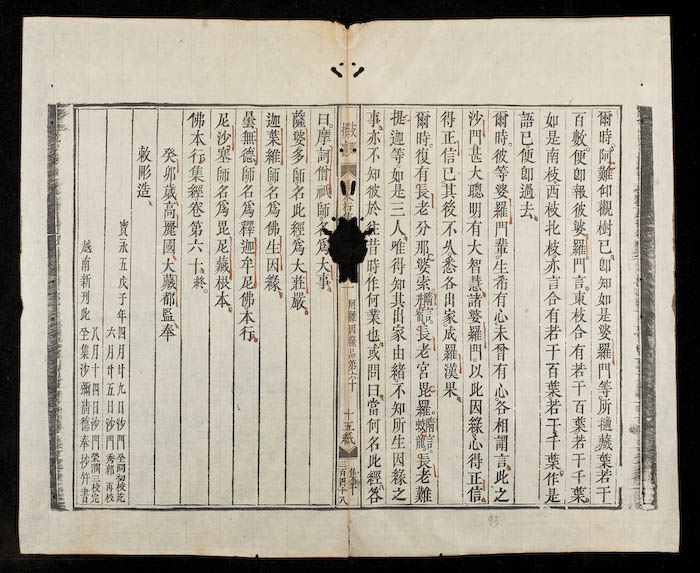 爾時。阿難仰觀樹已即知如是婆羅門等所藏葉若干
百數便即報彼婆羅門言。東枝合有若干百葉若干千葉
如是南枝西枝北枝亦言合有若干百葉若干千葉作是
語已便即過去。
爾時。彼等婆羅門輩。生希有心未曾有心各相謂言。此
沙門甚大聰明有大智慧諸婆羅門以此因緣心得正信。
得正信已其後不久悉各出家成羅漢果。
爾時。復有長老分那婆索隋言長老宮毘羅隋言蛟龍。長老難
提迦等如是三人唯得知其出家由緒不知所生因緣之
事亦不知彼於往昔時作何業也。或問曰。當何名此經。答
行
阿難因緣品第六十
十五紙
三百四十八
曰。摩訶僧祇師名爲大事。
薩婆多師名此經爲大莊嚴。
迦葉維師名爲佛生因緣。
曇無德師名爲釋迦牟尼佛本行。
尼沙塞師名爲毘尼藏根本。
佛本行集經卷第六十 終。
癸卯歲高麗國大藏都監奉
敕彫造
寶永五戊子年四月廿九日沙門
六月廿五日沙門 再校
八月十四日沙門 三校完
越南新刊此全集沙彌清德奉抄
93